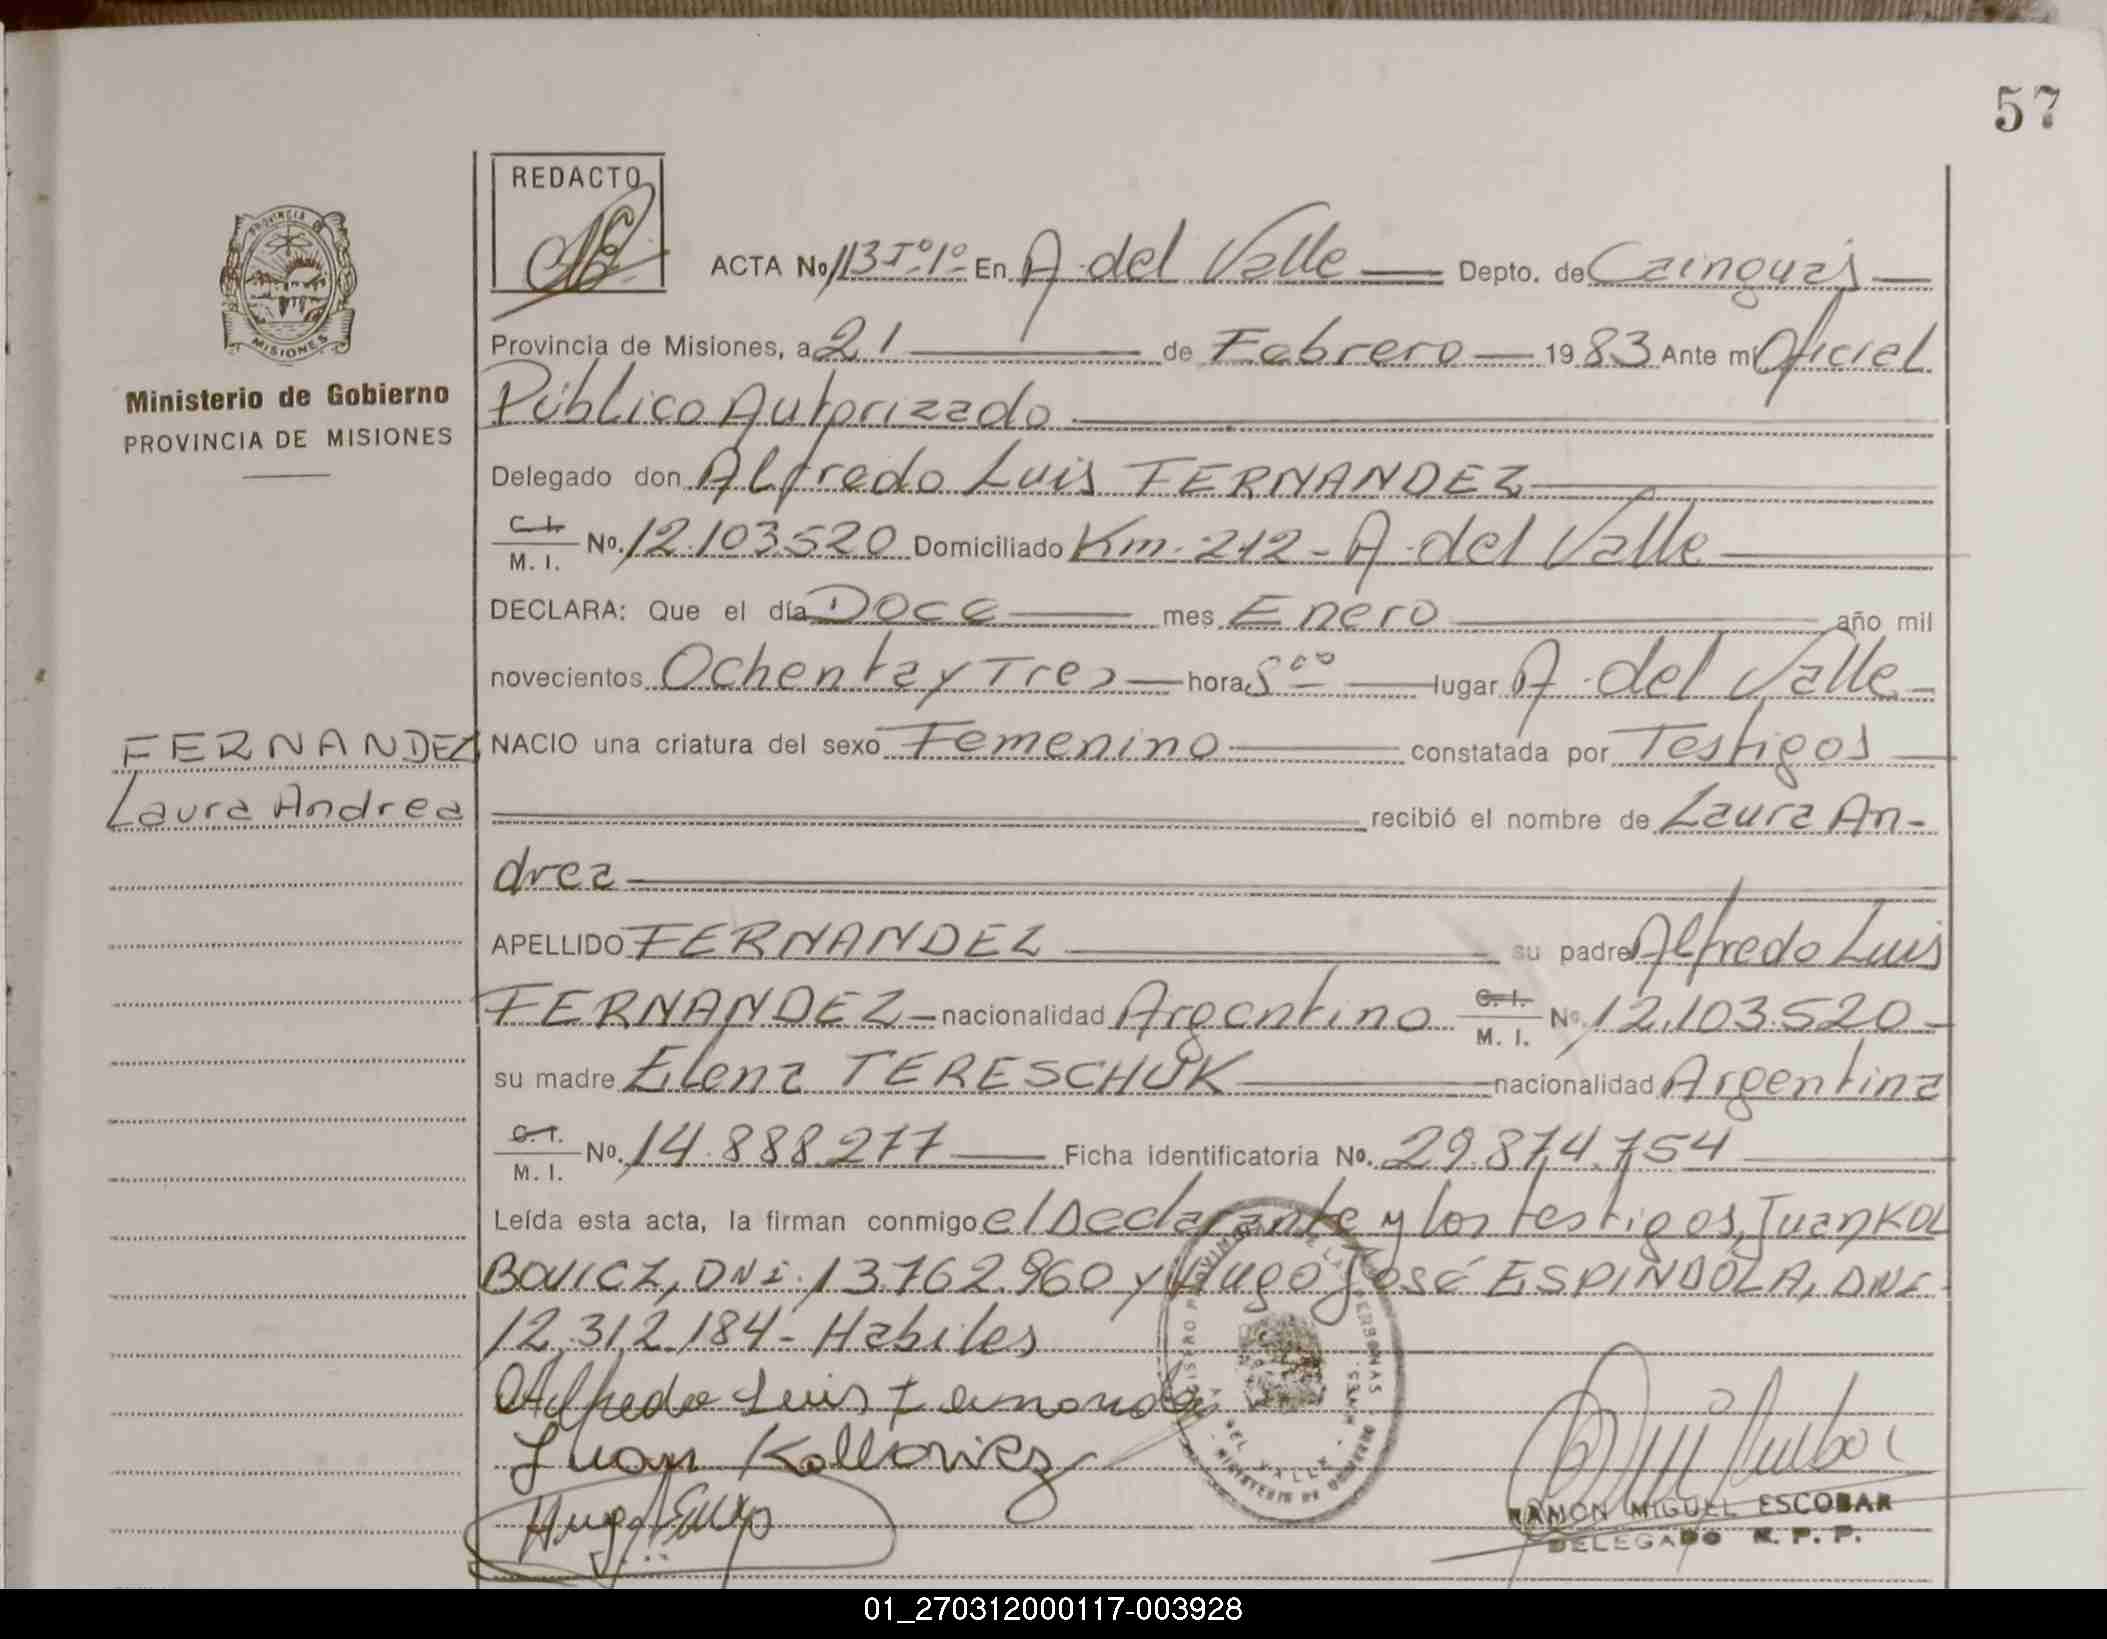 57
REDACTO
ACTA No 113 Tº 1º En A. del Valle Depto. de Cainguás
Provincia de Misiones, a 21 de Febrero 1983 Ante mí Oficial
Público Autorizado
Delegado don Alfredo Luis FERNANDEZ
C. I. M. I. No. 12.103.520 Domiciliado Km. 212 - A. del Valle
DECLARA: Que el día Doce mes Enero año mil
novecientos Ochenta y Tres hora 8 00 lugar A. del Valle
NACIO una criatura del sexo Femenino constatada por Testigos
recibió el nombre de Laura An-
drea
APELLIDO FERNANDEZ su padre Alfredo Luis
FERNANDEZ - nacionalidad Argentino C. I. M. I. No. 12.103.520 -
su madre Elena TERESCHUK nacionalidad Argentina
C. I. M. I. No. 14.888.277 Ficha identificatoria No. 29.874.754
Leída esta acta, la firman conmigo el Declarante y los testigos, Juan KOL
BOVICZ, DNI. 13.762.960 y Hugo José ESPINDOLA, DNI-
12.312.184 - Habiles
Alfredo Luis Fernandez
Juan
Hugo
RAMON MIGUEL ESCOBAR
DELEGADO R. P. P.
PROVINCIA
MISIONES
Ministerio de Gobierno
PROVINCIA DE MISIONES
FERNANDEZ
Laura Andrea
DE LAS PERSONAS
DEL VALLE
MINISTERIO DE GOBIERNO
01_270312000117-003928